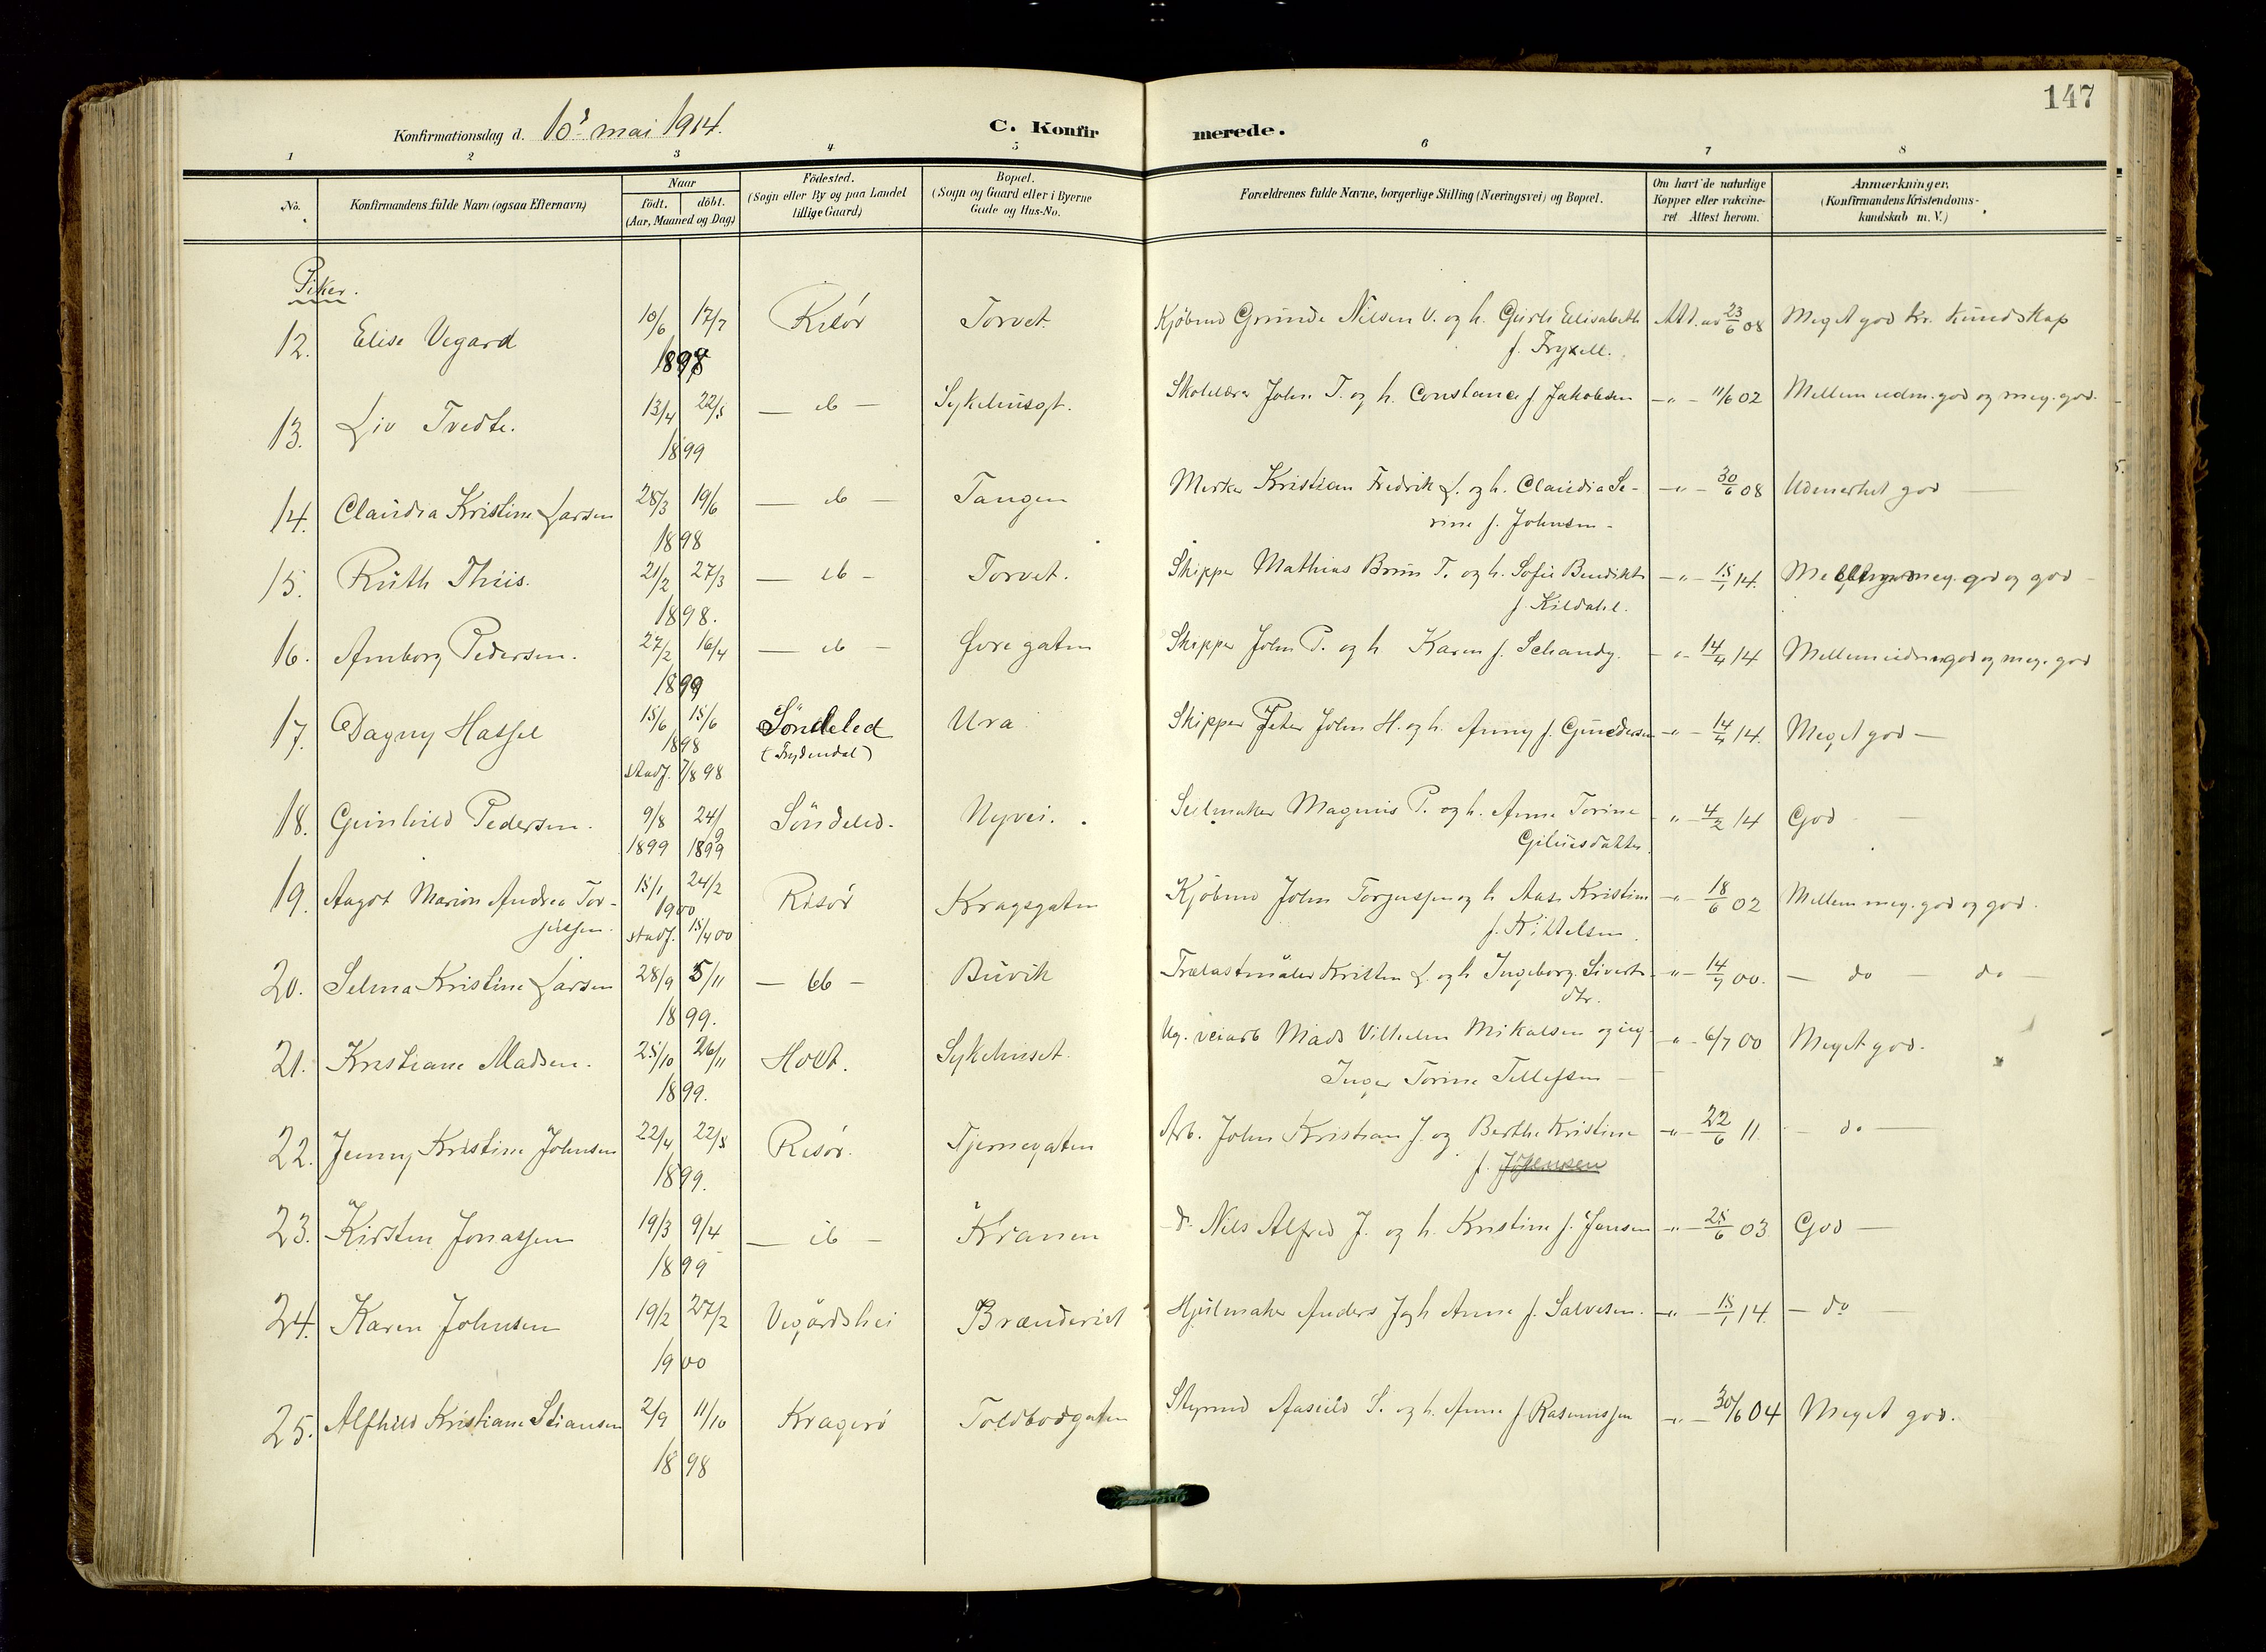 147
Konfirmationsdag d. 10' mai 1914.
C. Konfirmerede.
1 2 3 4 5 6 7 8
No.
Konfirmandens fulde Navn (ogsaa Efternavn)
Naar
födt. döbt.
(Aar, Maaned og Dag)
Födested.
(Sogn eller By og paa Landet
tillige Gaard)
Bopæl.
(Sogn og Gaard eller i Byerne
Gade og Hus-No.
Forældrenes fulde Navne, borgerlige Stilling (Næringsvei) og Bopæl.
Om havt de naturlige
Kopper eller vakcine-
ret Attest herom.
Anmærkninger.
(Konfirmandens Kristendoms-
kundskab m. V.)
Piker.
12. Elise Vegard 10/6 17/7 Risör Torvet. Kjöbmd Grunde Nilsen V. og h. Elisabeth Att. av 23/6 08 Meget god kr. kundskap
1898 f. Fryxell.
13. Liv Tvedte. 13/4 22/5 — ib — Sykehusgt. Skolelærer John T. og h. Constance f Jakobsen — " — 11/6 02 Mellem udm. god og meg. god.
1899
14. Claudia Kristine Larsen 28/3 19/6 — ib — Tangen Kristian Fredrik L. og h. Claudia Se- — " — 30/6 08 Udmerket god —
1898 rine f. Johnsen -
15. Ruth Thiis. 21/2 27/3 — ib — Torvet. Skipper Mathias Brun T. og h. Sofie Bendikte — " — 15/1 14. meg. god og god —
1898. f. Kildahl.
16. Arnborg Pedersen. 27/2 16/4 — ib — Øvregaten Skipper John P. og h Karen f. Schandy. — " — 14/4 14 Mellem udm. god og meg. god
1899
17. Dagny Hassel 15/6 15/6 Söndeled Ura Skipper Peter John H. og h. Anny f. Gundersen — " — 14/4 14. Meget god —
1898 (Frydendal)
stadf. 7/8 98
18. Gunhild Pedersen. 9/8 24/9 Söndeled. Nyvei. Seilmaker Magnus P. og h. Anne Torine " — 4/2 14 God —
1899 1899
19. Aagot Marion Andrea Tor- 15/1 24/2 Risör Kragsgaten Kjöbmd John Torjussen og h Aase Kristine — " — 18/6 02 Mellem meg. god og god.
jussen. 1900 f. Kittelsen.
stadf. 15/4 00
20. Selma Kristine Larsen 28/9 5/11 — ib — Buvik Trælastmåler Kristen L. og h Ingeborg Siverts- — " — 14/7 00. — do — do —
1899. dtr.
21. Kristiane Madsen. 25/10 26/11 Holt. Sykehuset. Ug. veiarb Mads Vilhelm Mikalsen og ug. — " — 6/7 00 Meget god.
1899. Inger Torine Tellefsen —
22. Jenny Kristine Johnsen 22/4 22/5 Risör. Tjernegaten Arb. John Kristian J. og Berthe Kristine — " — 22/6 11. — do —
1899. f. Jörgensen
23. Kirsten Jonassen 19/3 9/4 — ib — Kranen d. Nils Alfred J. og h. Kristine f. Jensen — " — 25/6 03 God —
1899
24. Karen Johnsen 19/2 27/2 Vegårdshei Hjulmaker Anders J og h Anne f. Salvesen. — " — 15/1 14. — do —
1900
25. Alfhild Kristiane Stiansen 2/9 11/10 Kragerö Toldbodgaten Styrmd S. og h. Anne f Rasmussen — " — 30/6 04 Meget god.
1898